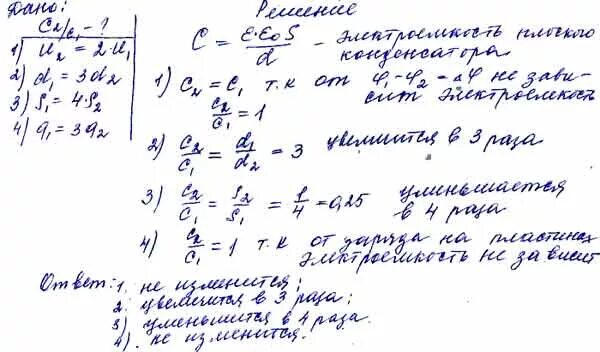 Дано:
C₂/C₁ - ?
1) U₂ = 2U₁
2) d₁ = 3d₂
3) S₁ = 4S₂
4) q₁ = 3q₂
Решение
C = ε·ε₀S/d - электроемкость плоского
конденсатора
1) C₂ = C₁ т.к от φ₁-φ₂ = Δφ не зави-
сит электроемкость
C₂/C₁ = 1
2) C₂/C₁ = d₁/d₂ = 3 увеличится в 3 раза
3) C₂/C₁ = S₂/S₁ = 1/4 = 0,25 уменьшается
в 4 раза
4) C₂/C₁ = 1 т.к от заряда на пластинах
электроемкость не зависит
Ответ: 1. не изменится;
2. увеличится в 3 раза;
3) уменьшится в 4 раза.
4). не изменится.